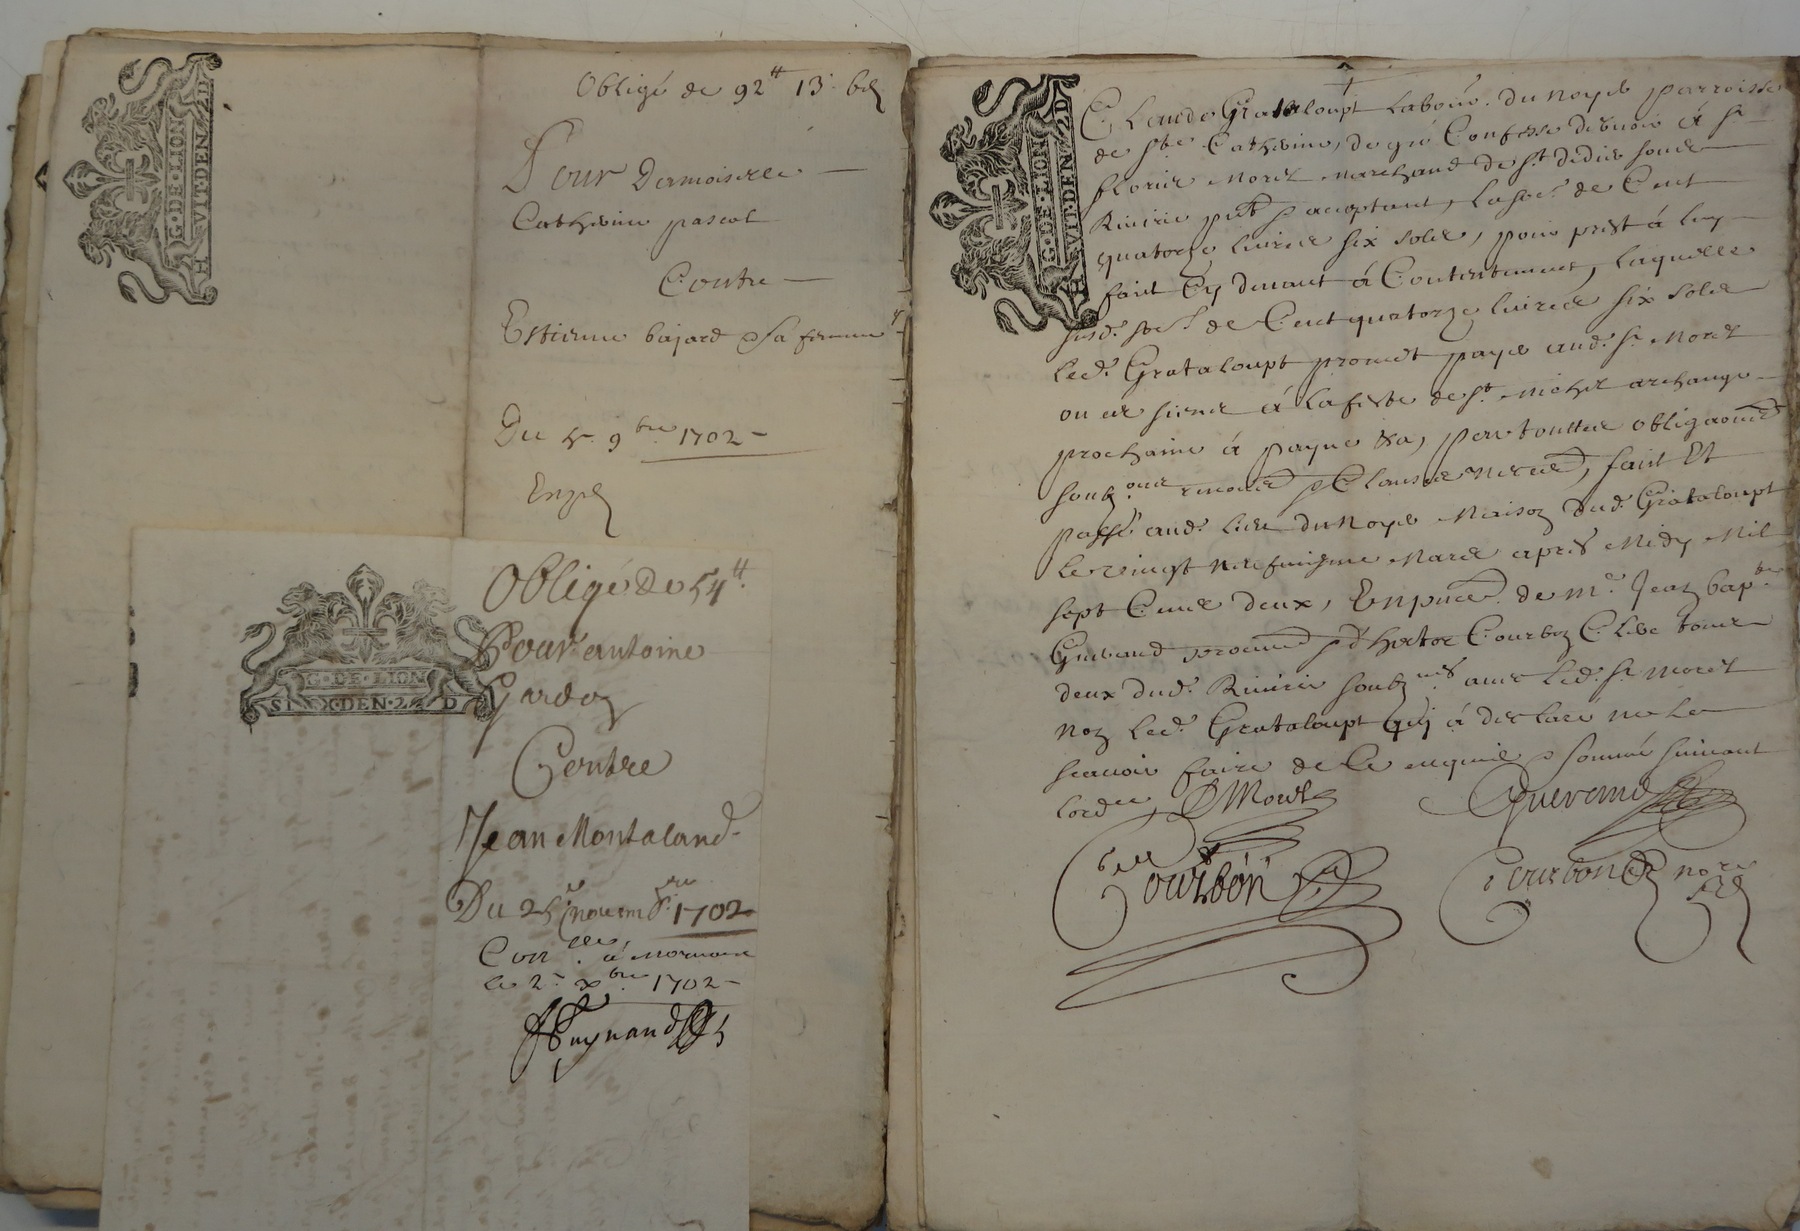 G·DE·LION
HVIT·DEN 2 D
Obligé de 92# 13s 6d
Pour Damoiselle
Catherine pascal
Contre
Estienne bajard & sa femme
Du 4e 9bre 1702
G·DE·LION
SIX·DEN·2 D
Obligé De 54#
Pour antoine
Gardon
Contre
Jean Montaland
Du 25e novembre 1702
Conlle a Mornant
le 2e xbre 1702
G·DE·LION
HVIT·DEN 2 D
Claude Grataloupt labour. du noyer parroisse
de ste Catherine, de gré Confesse debvoir à sr
florie Morel marchand de st didier soubz
Riverie pnt & acceptant, la some de Cent
quatorze livres six solz, pour prest à luy
fait Cy devant à Contentement, laquelle
susd. some de Cent quatorze livres six solz
led. Grataloupt promet payer aud. sr Morel
ou es siens à la feste de st michel archange
prochaine à payne &a, par touttes obligaons
soubzons renonces & Clauses necres, fait Et
passé aud. lieu du Noyer Maison dud. Grataloupt
le vingt neufviesme Mars apres Midy Mil
sept Cens deux, En pnce de me Jean bapte
Guerand & sr hector Courbon Clerc tous
deux dud. Riverie soubznes avec led. sr morel
non led. Grataloupt quj à declaré ne le
scavoir faire de Ce enquis & sommé suivant
lordce
Morel
Guerand
Courbon
Courbon nore